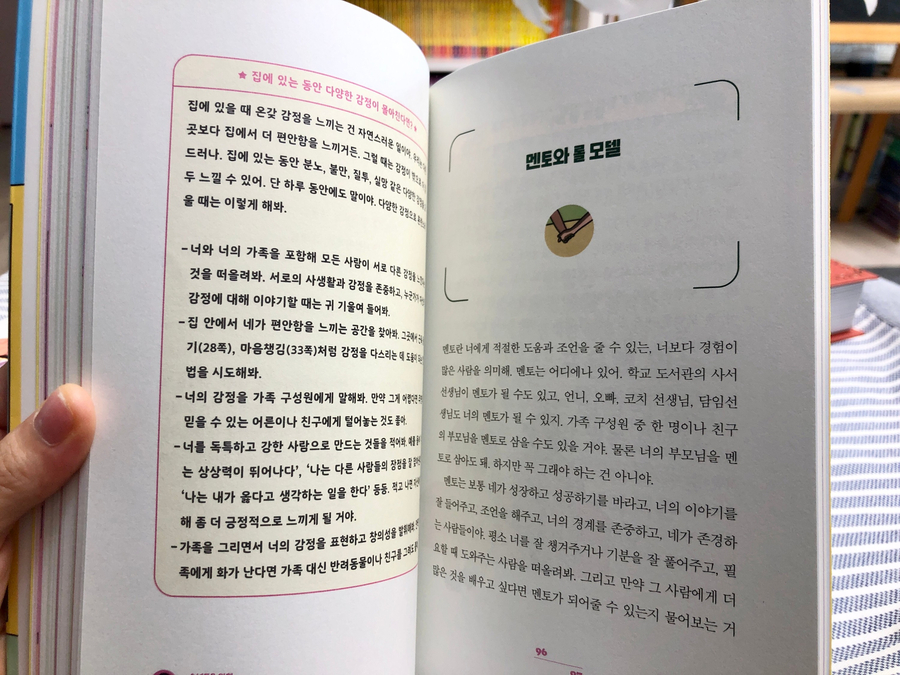 ★ 집에 있는 동안 다양한 감정이 몰아친다면? ★
집에 있을 때 온갖 감정을 느끼는 건 자연스러운 일이야.
곳보다 집에서 더 편안함을 느끼거든. 그럴 때는 감정이
드러나. 집에 있는 동안 분노, 불만, 질투, 실망 같은 다양한
두 느낄 수 있어. 단 하루 동안에도 말이야. 다양한 감정으로
울 때는 이렇게 해봐.
– 너와 너의 가족을 포함해 모든 사람이 서로 다른 감정을
것을 떠올려봐. 서로의 사생활과 감정을 존중하고,
감정에 대해 이야기할 때는 귀 기울여 들어봐.
– 집 안에서 네가 편안함을 느끼는 공간을 찾아봐. 그곳에서
기(28쪽), 마음챙김(33쪽)처럼 감정을 다스리는 데 도움이
법을 시도해봐.
– 너의 감정을 가족 구성원에게 말해봐. 만약 그게 어렵다면
믿을 수 있는 어른이나 친구에게 털어놓는 것도 좋아.
– 너를 독특하고 강한 사람으로 만드는 것들을 적어봐.
는 상상력이 뛰어나다’, ‘나는 다른 사람들의 장점을 잘
‘나는 내가 옳다고 생각하는 일을 한다’ 등등. 적고 나면
해 좀 더 긍정적으로 느끼게 될 거야.
– 가족을 그리면서 너의 감정을 표현하고 창의성을
족에게 화가 난다면 가족 대신 반려동물이나 친구를
멘토와 롤 모델
멘토란 너에게 적절한 도움과 조언을 줄 수 있는, 너보다 경험이
많은 사람을 의미해. 멘토는 어디에나 있어. 학교 도서관의 사서
선생님이 멘토가 될 수도 있고, 언니, 오빠, 코치 선생님, 담임선
생님도 너의 멘토가 될 수 있지. 가족 구성원 중 한 명이나 친구
의 부모님을 멘토로 삼을 수도 있을 거야. 물론 너의 부모님을 멘
토로 삼아도 돼. 하지만 꼭 그래야 하는 건 아니야.
멘토는 보통 네가 성장하고 성공하기를 바라고, 너의 이야기를
잘 들어주고, 조언을 해주고, 너의 경계를 존중하고, 네가 존경하
는 사람들이야. 평소 너를 잘 챙겨주거나 기분을 잘 풀어주고, 필
요할 때 도와주는 사람을 떠올려봐. 그리고 만약 그 사람에게 더
많은 것을 배우고 싶다면 멘토가 되어줄 수 있는지 물어보는 거
96